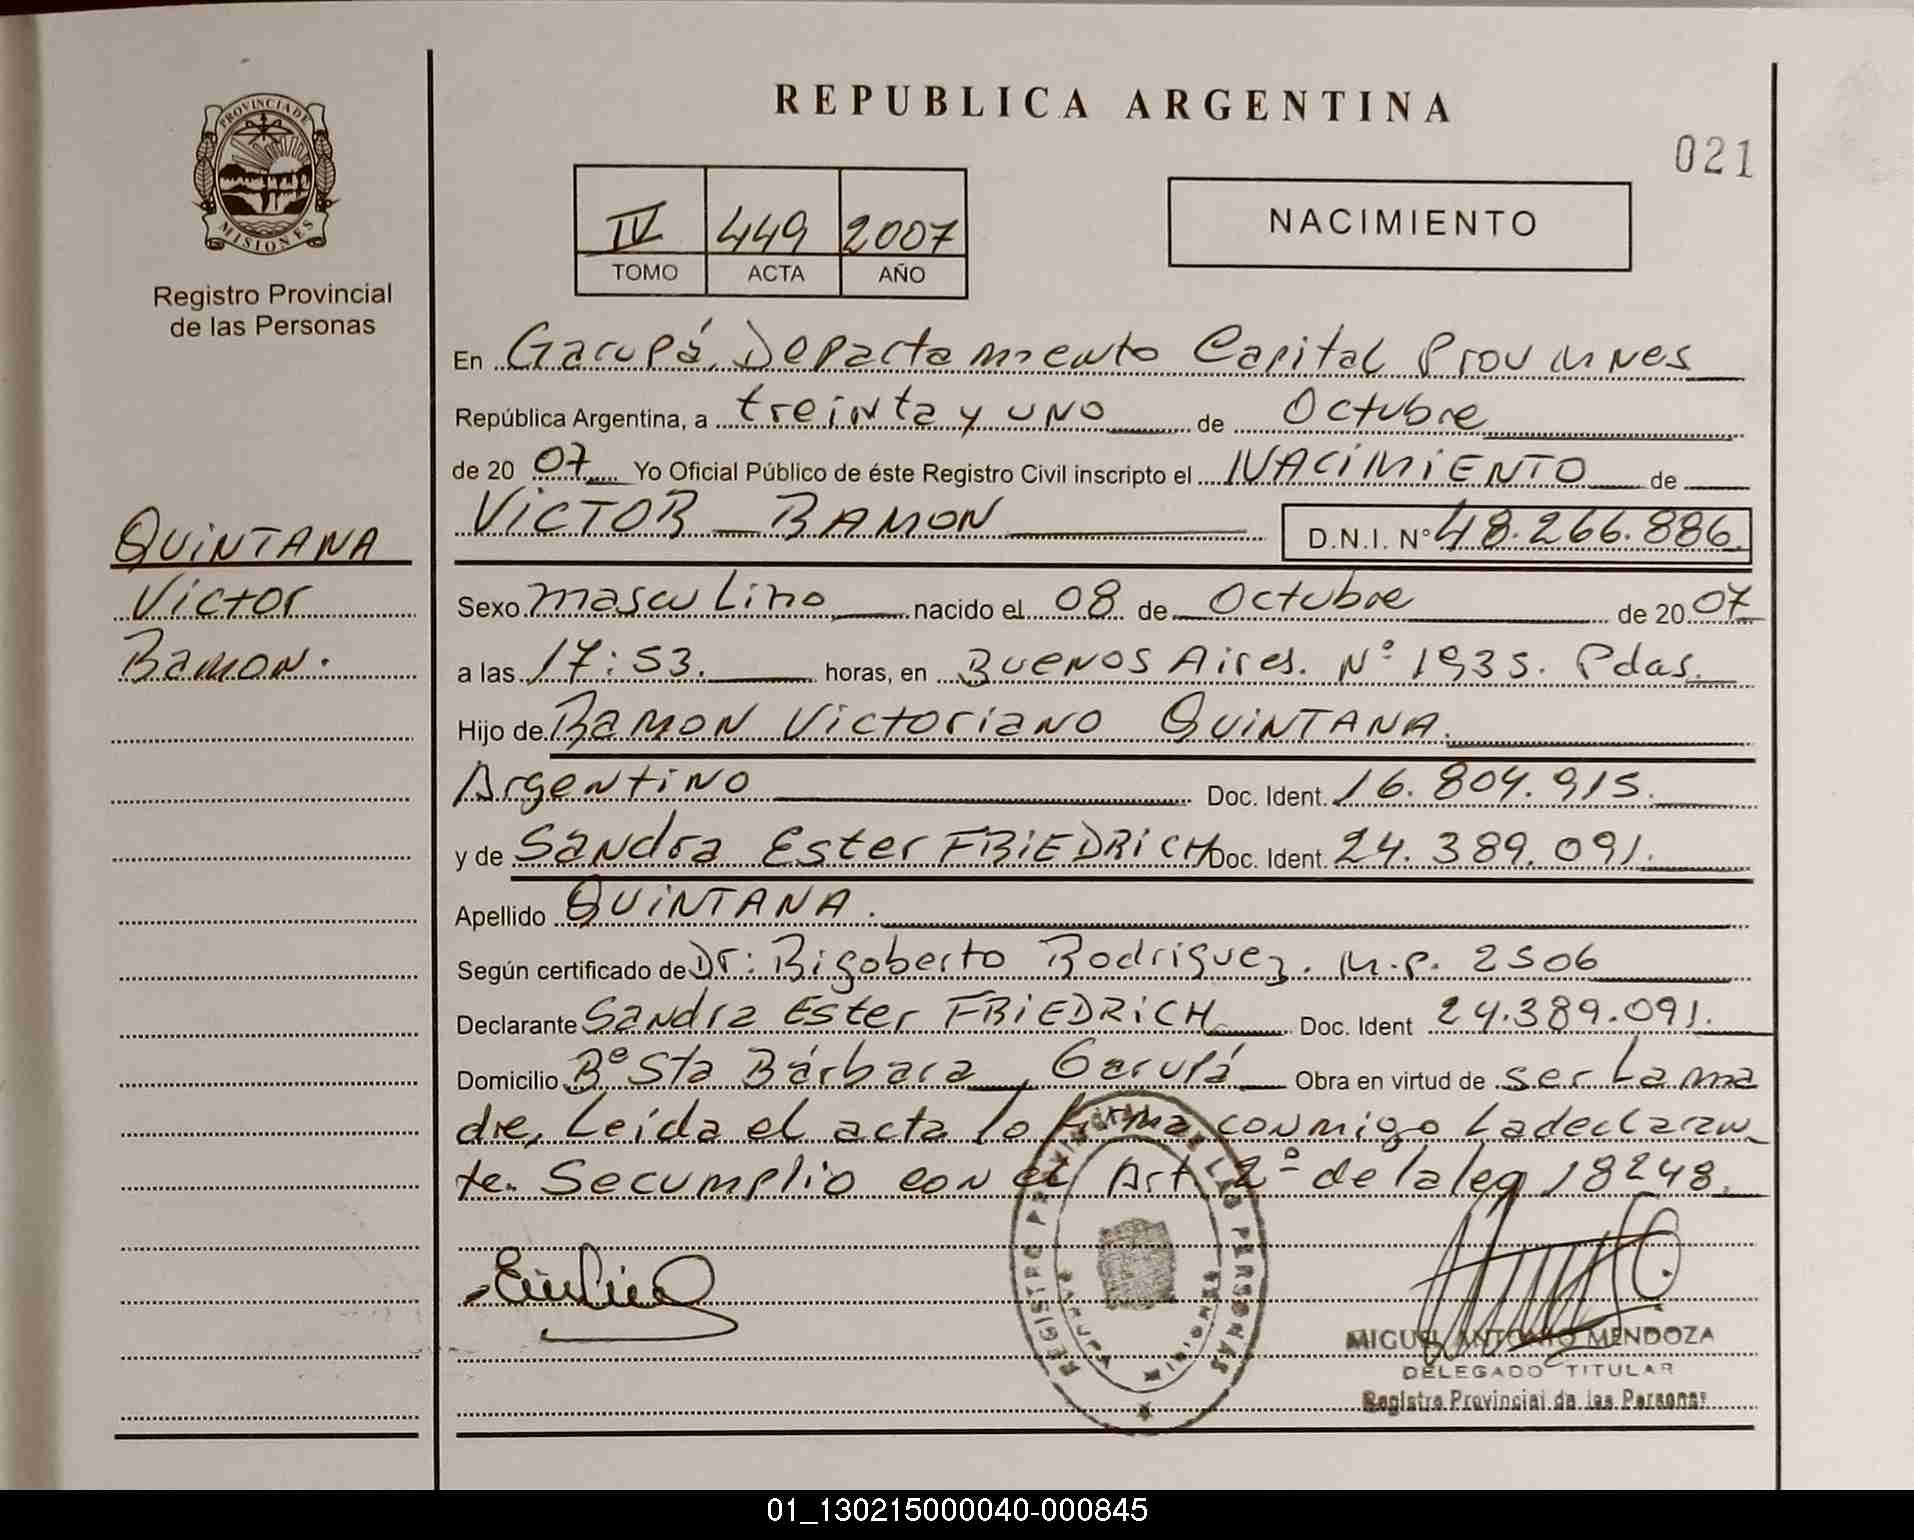 REPUBLICA ARGENTINA
021
PROVINCIA DE MISIONES
Registro Provincial
de las Personas
IV 449 2007
TOMO ACTA AÑO
NACIMIENTO
En Garupá, Departamento Capital Prov Mnes
República Argentina, a treinta y uno de Octubre
de 20 07 Yo Oficial Público de éste Registro Civil inscripto el NACIMIENTO de
VICTOR RAMON D.N.I. N° 48.266.886.
QUINTANA
Victor
Ramon.
Sexo masculino nacido el 08 de Octubre de 20 07
a las 17:53. horas, en Buenos Aires. Nº 1935. Pdas.
Hijo de Ramon Victoriano QUINTANA.
Argentino Doc. Ident. 16.804.915.
y de Sandra Ester FRIEDRICH Doc. Ident. 24.389.091.
Apellido QUINTANA.
Según certificado de Dr: Rigoberto Rodriguez. M.P. 2506
Declarante Sandra Ester FRIEDRICH Doc. Ident 24.389.091.
Domicilio Bº Sta Bárbara, Garupá Obra en virtud de ser la ma
dre, Leída el acta lo firma conmigo la declaran
te. Se cumplio con el Art 2º de la ley 18248.
REGISTRO PROVINCIAL DE LAS PERSONAS
MIGUEL ANTONIO MENDOZA
DELEGADO TITULAR
Registro Provincial de las Personas
01_130215000040-000845